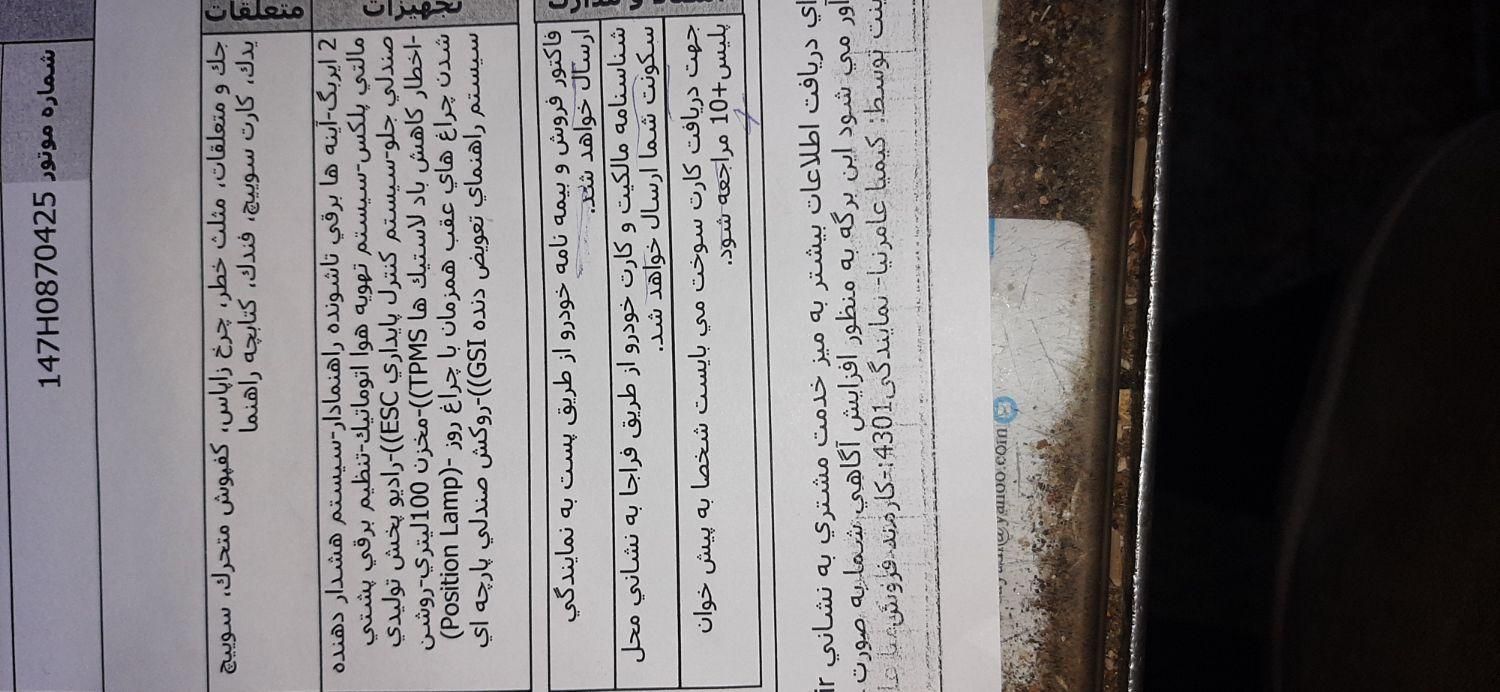 شماره موتور 147H0870425
متعلقات
جك و متعلقات، مثلث خطر، چرخ زاپاس، كفپوش متحرك، سوييچ
يدك، كارت سوييچ، فندك، كتابچه راهنما
تجهيزات
2 ايربگ-آينه ها برقي تاشونده راهنمادار-سيستم هشدار دهنده
مالتي پلكس-سيستم تهويه هوا اتوماتيك-تنظيم برقي پشتي
صندلي جلو-سيستم كنترل پايداري ESC))-راديو پخش توليدي
-اخطار كاهش باد لاستيك ها TPMS))-مخزن 100ليتري-روشن
شدن چراغ هاي عقب همزمان با چراغ روز -(Position Lamp)
سيستم راهنماي تعويض دنده GSI))-روكش صندلي پارچه اي
فاكتور فروش و بيمه نامه خودرو از طريق پست به نمايندگي
ارسال خواهد شد.
شناسنامه مالكيت و كارت خودرو از طريق فراجا به نشاني محل
سكونت شما ارسال خواهد شد.
جهت دريافت كارت سوخت مي بايست شخصا به پيش خوان
پليس+10 مراجعه شود.
اي دريافت اطلاعات بيشتر به ميز خدمت مشتري به نشاني ir
آور مي شود اين برگه به منظور افزايش آگاهي شما به صورت
ينت توسط: كيميا عامرنيا- نمايندگي4301:-كارمند فروش
@yahoo.com